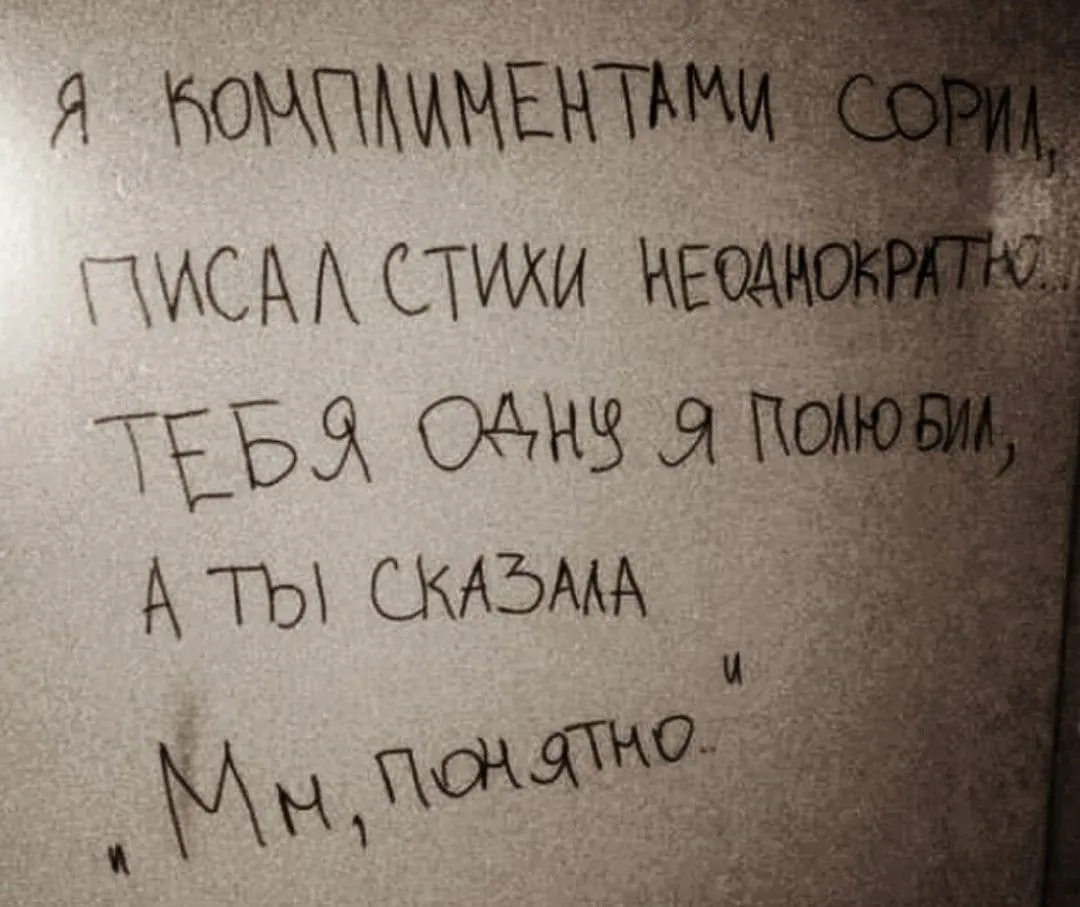 Я КОМПЛИМЕНТАМИ СОРИЛ,
ПИСАЛ СТИХИ НЕОДНОКРАТНО...
ТЕБЯ ОДНУ Я ПОЛЮБИЛ,
А ТЫ СКАЗАЛА
„Мм, ПОНЯТНО.."